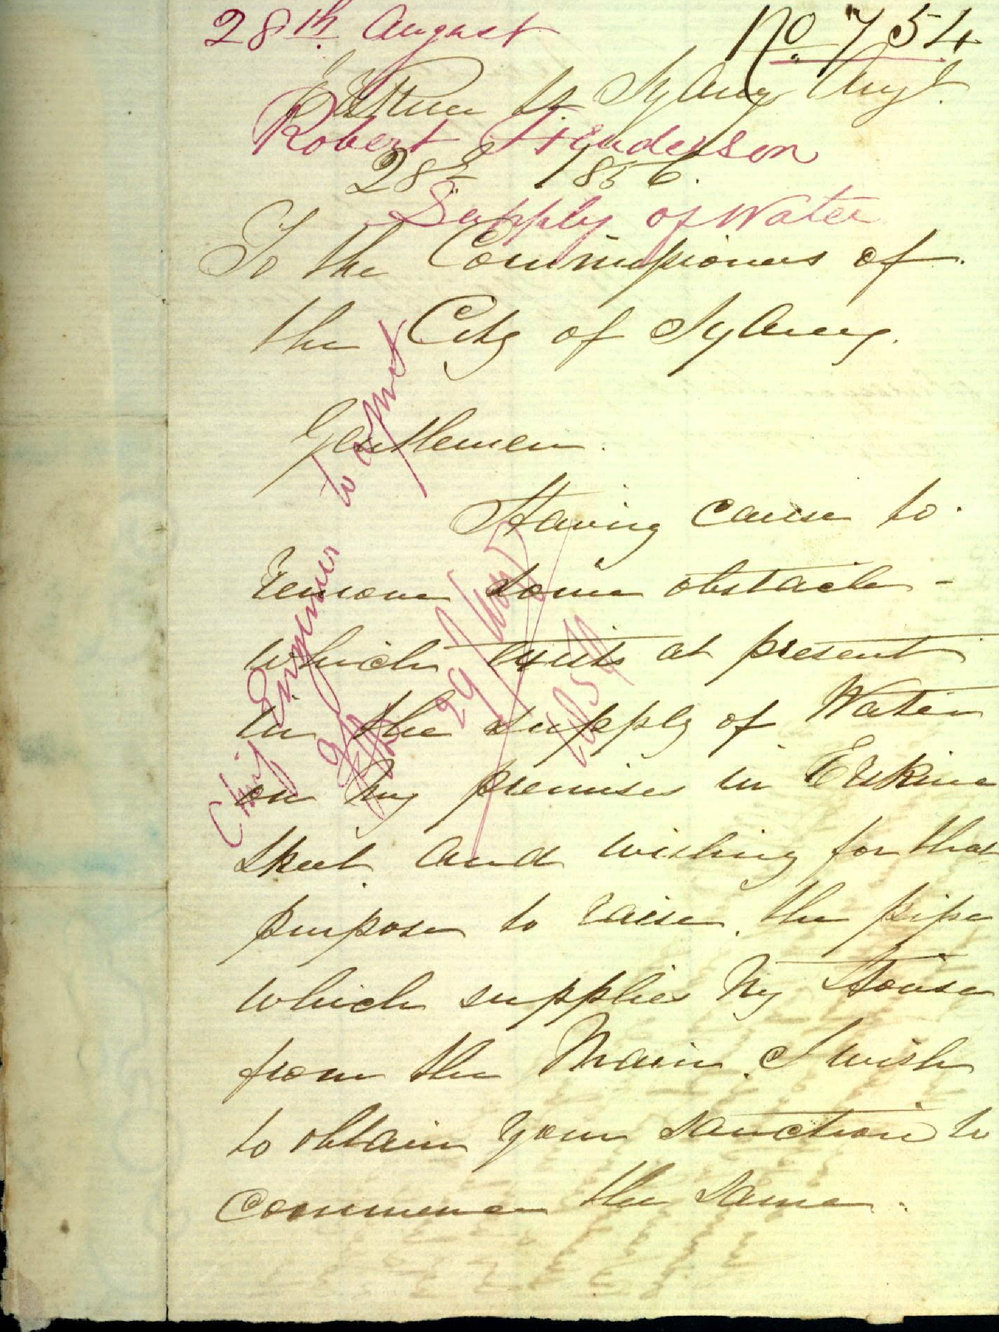 28th August
No 754
Erskine St Sydney Augt
Robert Henderson
28th 1856.
Supply of Water
To the Commissioners of
the City of Sydney.
Gentlemen.
Having cause to
remove some obstacle -
which exists at present
in the supply of Water
on my premises in Erskine
Street and wishing for that
purpose to raise the pipe
which supplies my House
from the Main. I wish
to obtain your sanction to
commence the same.
Chief Engineer to
29/